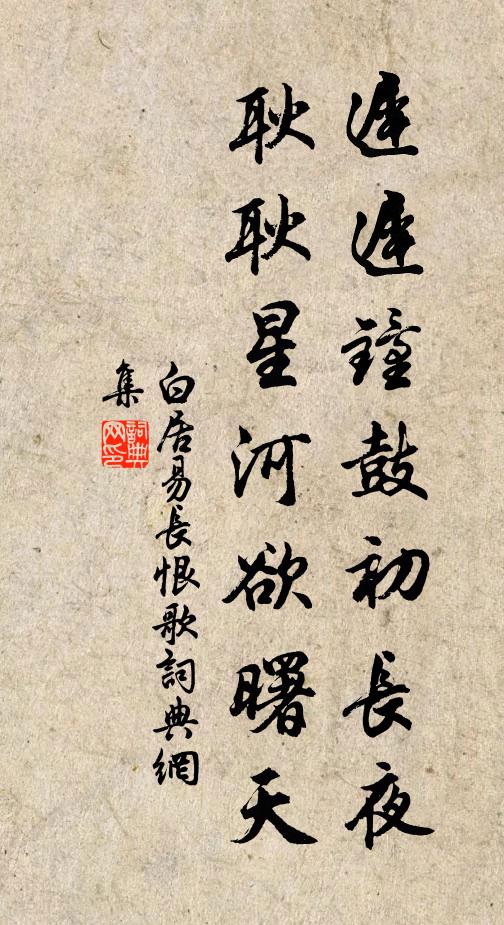 遲遲鐘鼓初長夜
耿耿星河欲曙天
白居易長恨歌詞典網
集
詞典
网印